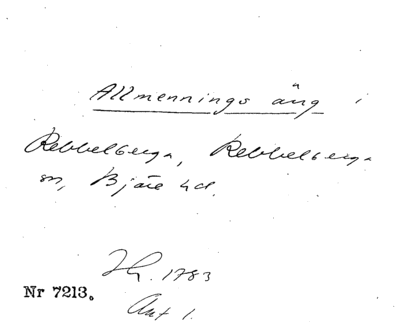 Allmennings äng i
Rebbelberga, Rebbelberga
sn, Bjäre hd.
1783
Nr 7213.
Akt 1.